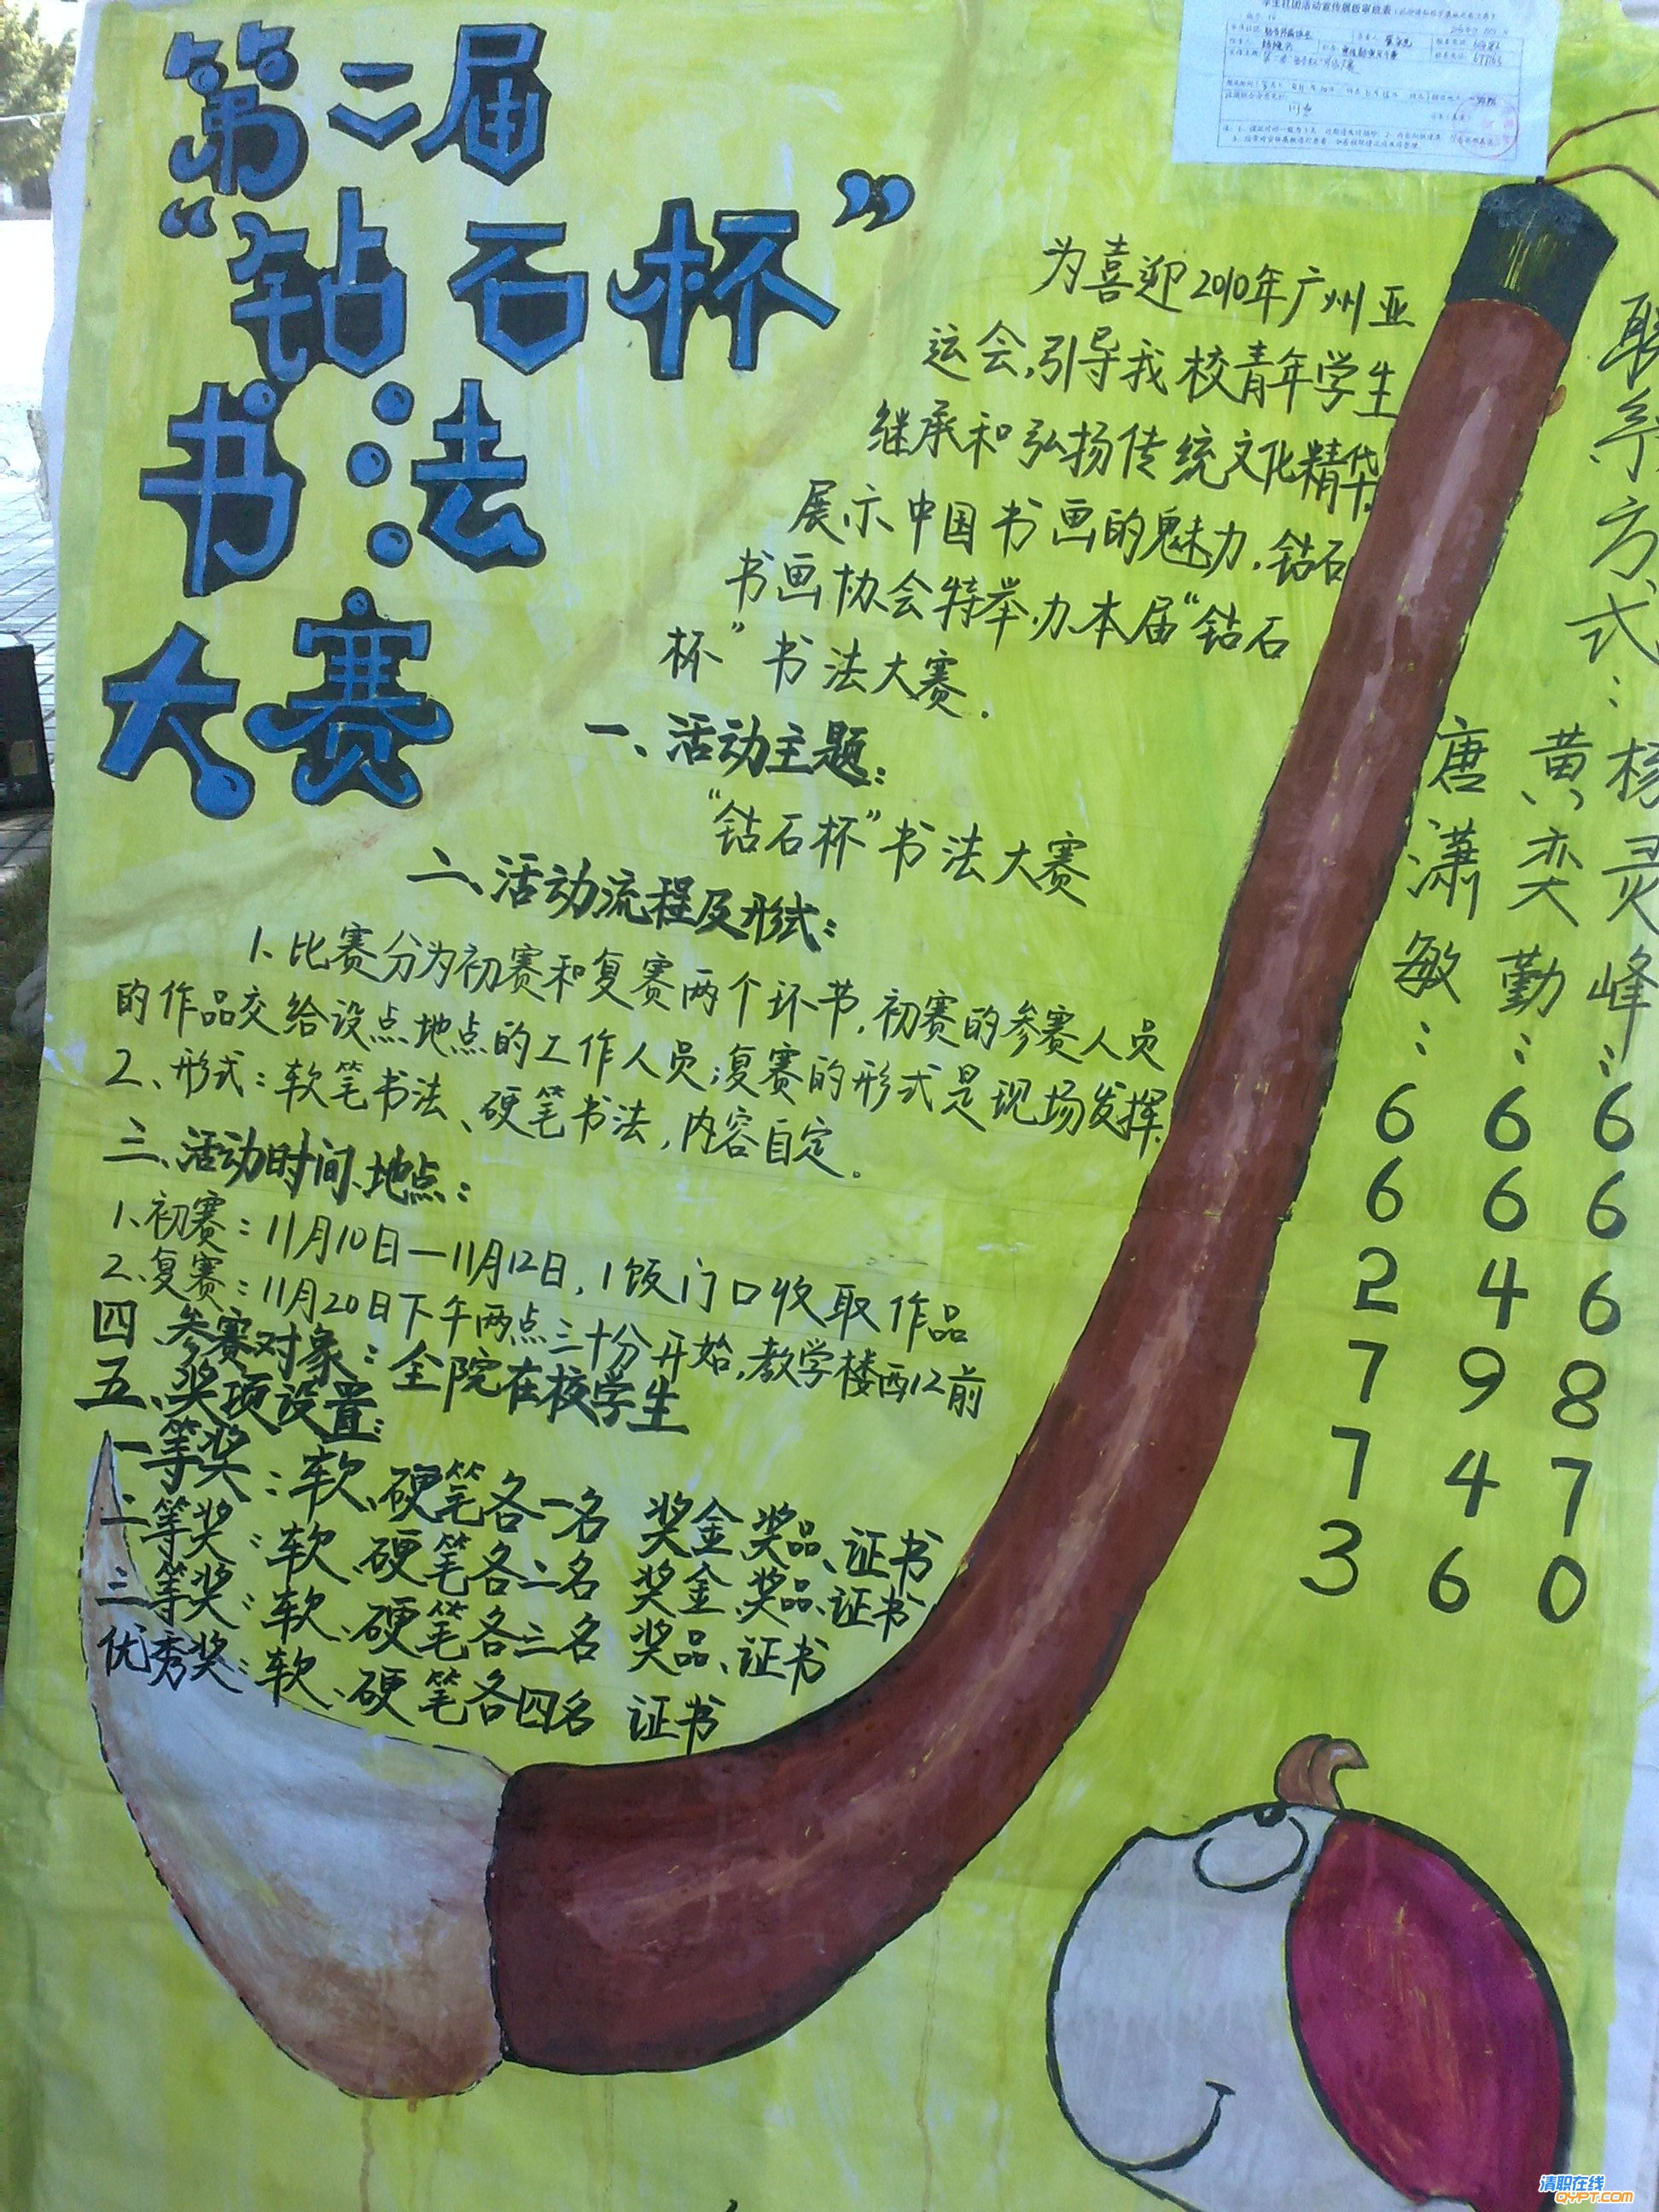 第二届
“钻石杯”
书法
大赛
为喜迎2010年广州亚
运会,引导我校青年学生
继承和弘扬传统文化精华,
展示中国书画的魅力,钻石
书画协会特举办本届“钻石
杯”书法大赛.
一、活动主题:
“钻石杯”书法大赛
二、活动流程及形式:
1.比赛分为初赛和复赛两个环节,初赛的参赛人员
的作品交给设点地点的工作人员;复赛的形式是现场发挥.
2、形式:软笔书法、硬笔书法,内容自定。
三、活动时间、地点:
1、初赛:11月10日—11月12日,1饭门口收取作品
2、复赛:11月20日下午两点三十分开始,教学楼西12前
四、参赛对象:全院在校学生
五、奖项设置:
一等奖:软、硬笔各一名 奖金、奖品、证书
二等奖:软、硬笔各二名 奖金、奖品、证书
三等奖:软、硬笔各三名 奖品、证书
优秀奖:软、硬笔各四名 证书
联系方式:
杨灵峰:666870
黄奕勤:664946
唐潇敏:662773
学生社团活动宣传展板审批表
清职在线
QYPT.COM